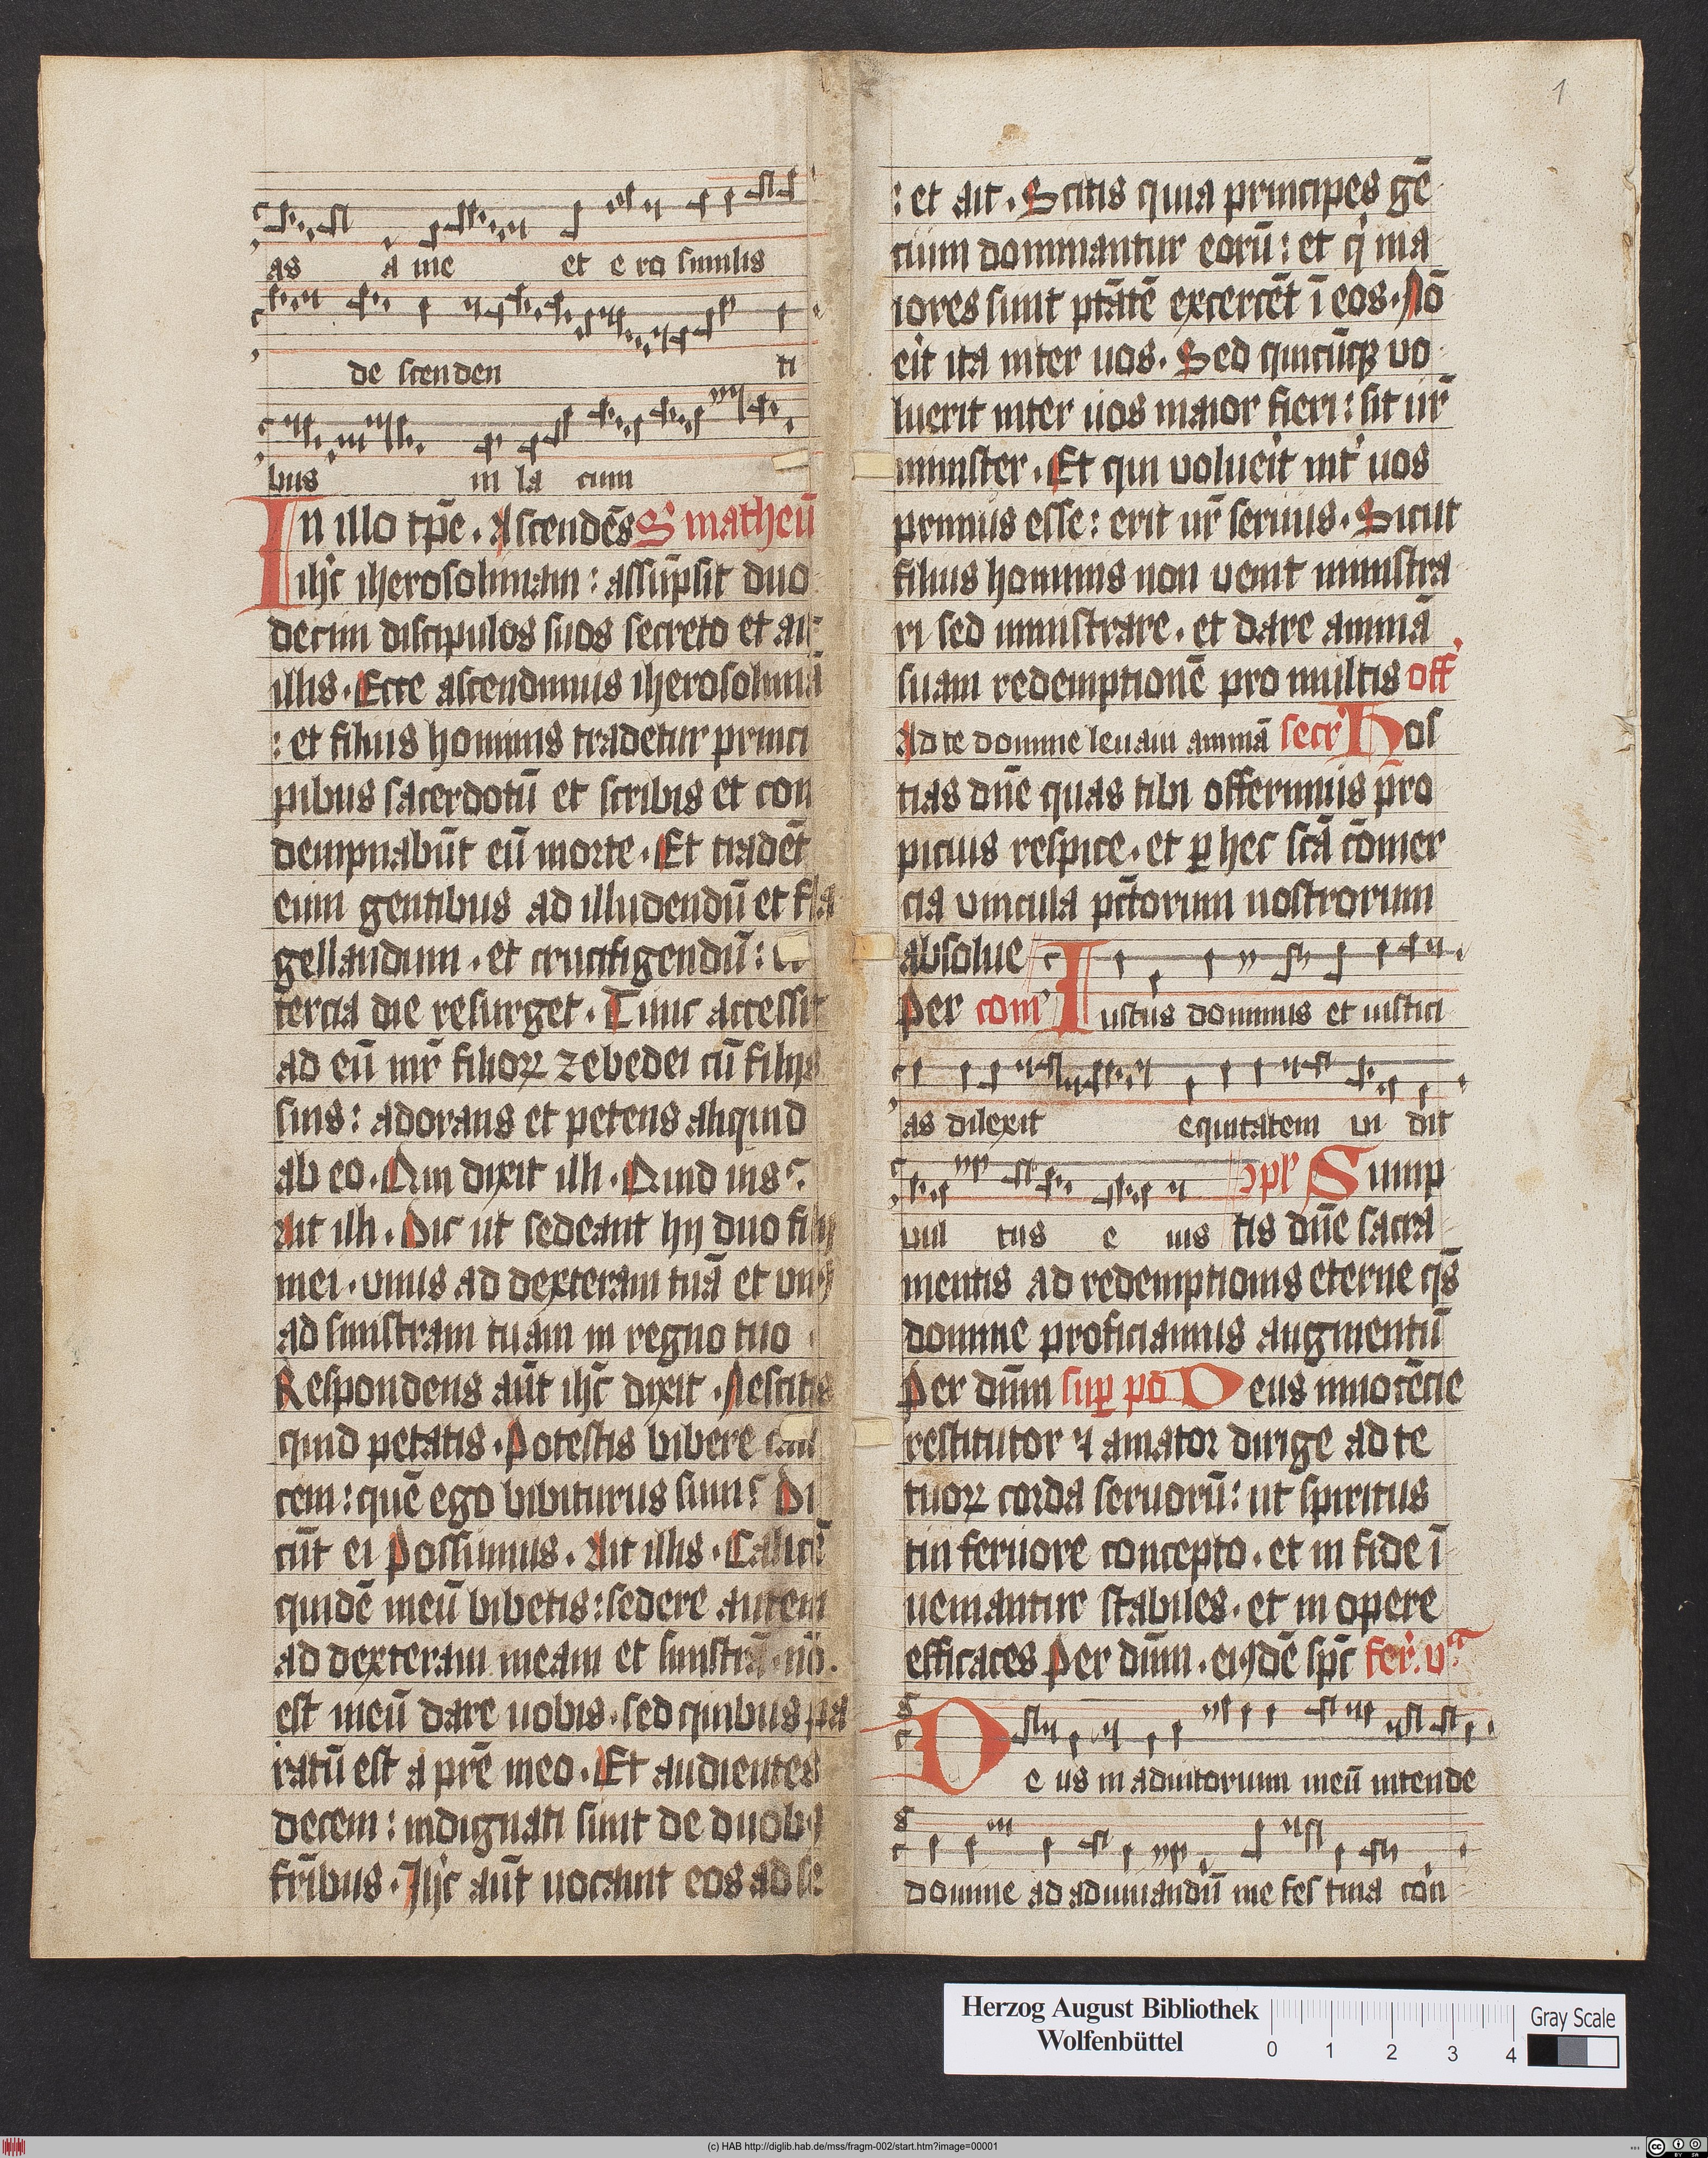 as a me et e ro similis
de scenden ti
bus in la cum
In illo tp̄e. Ascendēs S' matheū
ihc̄ iherosolimam: assūpsit duo
decim discipulos suos secreto et ait
illis. Ecce ascendimus iherosolimā
: et filius hominis tradetur princi
pibus sacerdotū et scribis et con
dempnabūt eū morte. Et tradēt
eum gentibus ad illudendū et fla
gellandum. et crucifigendū:
tercia die resurget. Tunc accessit
ad eū mr̄ filioꝝ zebedei cū filijs
suis: adorans et petens aliquid
ab eo. Qui dixit illi. Quid uis?
Ait illi. Dic ut sedeant hij duo filij
mei. vnus ad dexteram tuā et vnꝰ
ad sinistram tuam in regno tuo
Respondens aūt ihc̄ dixit. Nescitis
quid petatis. Potestis bibere cali
cem: quē ego bibiturus sum? Di
cūt ei Possumus. Ait illis. Calicē
quidē meū bibetis: sedere autem
ad dexteram meam et sinistrā. nō.
est meū dare uobis. sed quibus pa
ratū est a pr̄e meo. Et audientes
decem: indignati sunt de duobꝰ
fr̄ibus. Ihc̄ aūt uocauit eos ad se
1
: et ait. Scitis quia principes gē
cium dominantur eorū: et q̇ ma
iores sunt ptātē excercēt ī eos. Nō
eit̄ ita inter uos. Sed quicūqꝫ uo
luerit inter uos maior fieri: sit ur̄
minister. Et qui voluei̇t int' uos
primus esse: erit ur̄ seruus. Sicut
filius hominis non uenit ministra
ri sed ministrare. et dare animā
suam redemptionē pro multis off'
Ad te domine leuaui animā secr' Hos
tias dn̄e quas tibi offerimus pro
picius respice. et ꝑ hec scā cōmer
cia vincula pctōrum nostrorum
absolue
Per com' Iustus dominus et iustici
as dilexit equitatem ui dit
vul tus e ius ↄpl' Sump
tis dn̄e sacra
mentis ad redemptionis eterne qs̄
domine proficiamus augmentū
Per dn̄m suꝑ pō Deus innocēcie
restitutor ⁊ amator dirige ad te
tuoꝝ corda seruorū: ut spiritus
tui feruore concepto. et in fide ī
ueniantur stabiles. et in opere
efficaces Per dn̄m. eiꝰdē spc̄ fer'. vᵗᵃ
De us in adiutorium meū intende
domine ad adiuuandū me fes tina cōn
Herzog August Bibliothek
Wolfenbüttel
0 1 2 3 4
Gray Scale
(c) HAB http://diglib.hab.de/mss/fragm-002/start.htm?image=00001